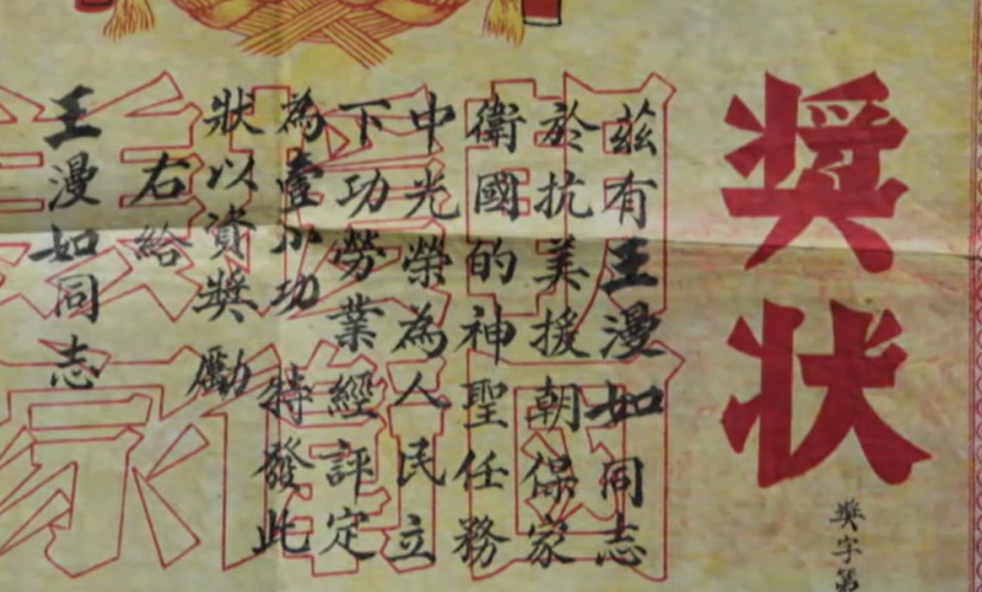 奖状
獎字第
茲有王漫如同志
於抗美援朝保家
衛國的神聖任務
中光榮為人民立
下功勞業經評定
為壹小功特發此
狀以資獎勵
右給
王漫如同志